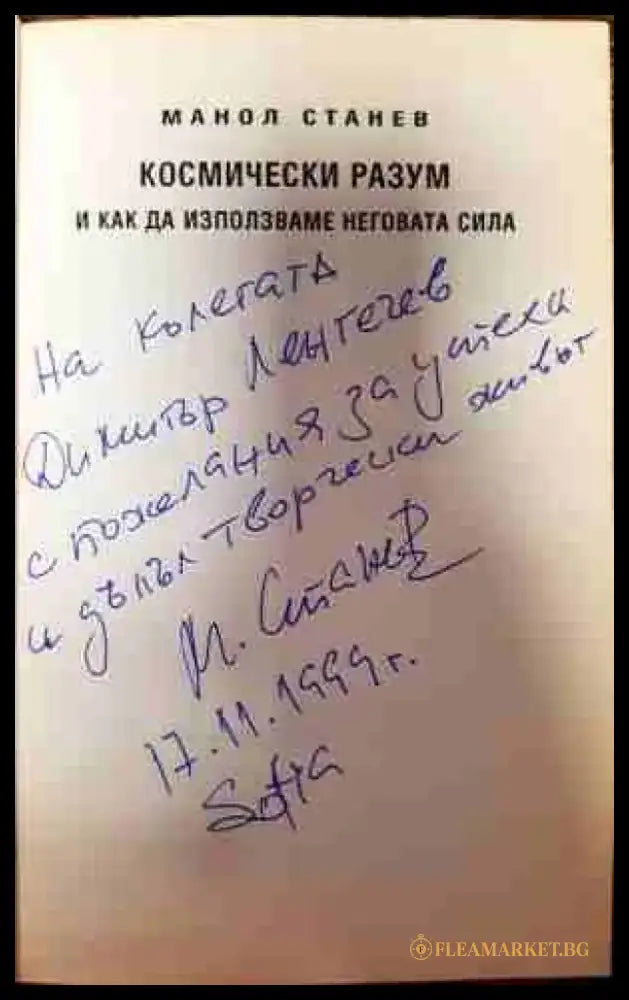 МАНОЛ СТАНЕВ
КОСМИЧЕСКИ РАЗУМ
И КАК ДА ИЗПОЛЗВАМЕ НЕГОВАТА СИЛА
На колегата
Димитър Ленгечев
с пожелания за успехи
и дълъг творчески живот
М. Станев
17.11.1999 г.
Sofia
FLEAMARKET.BG